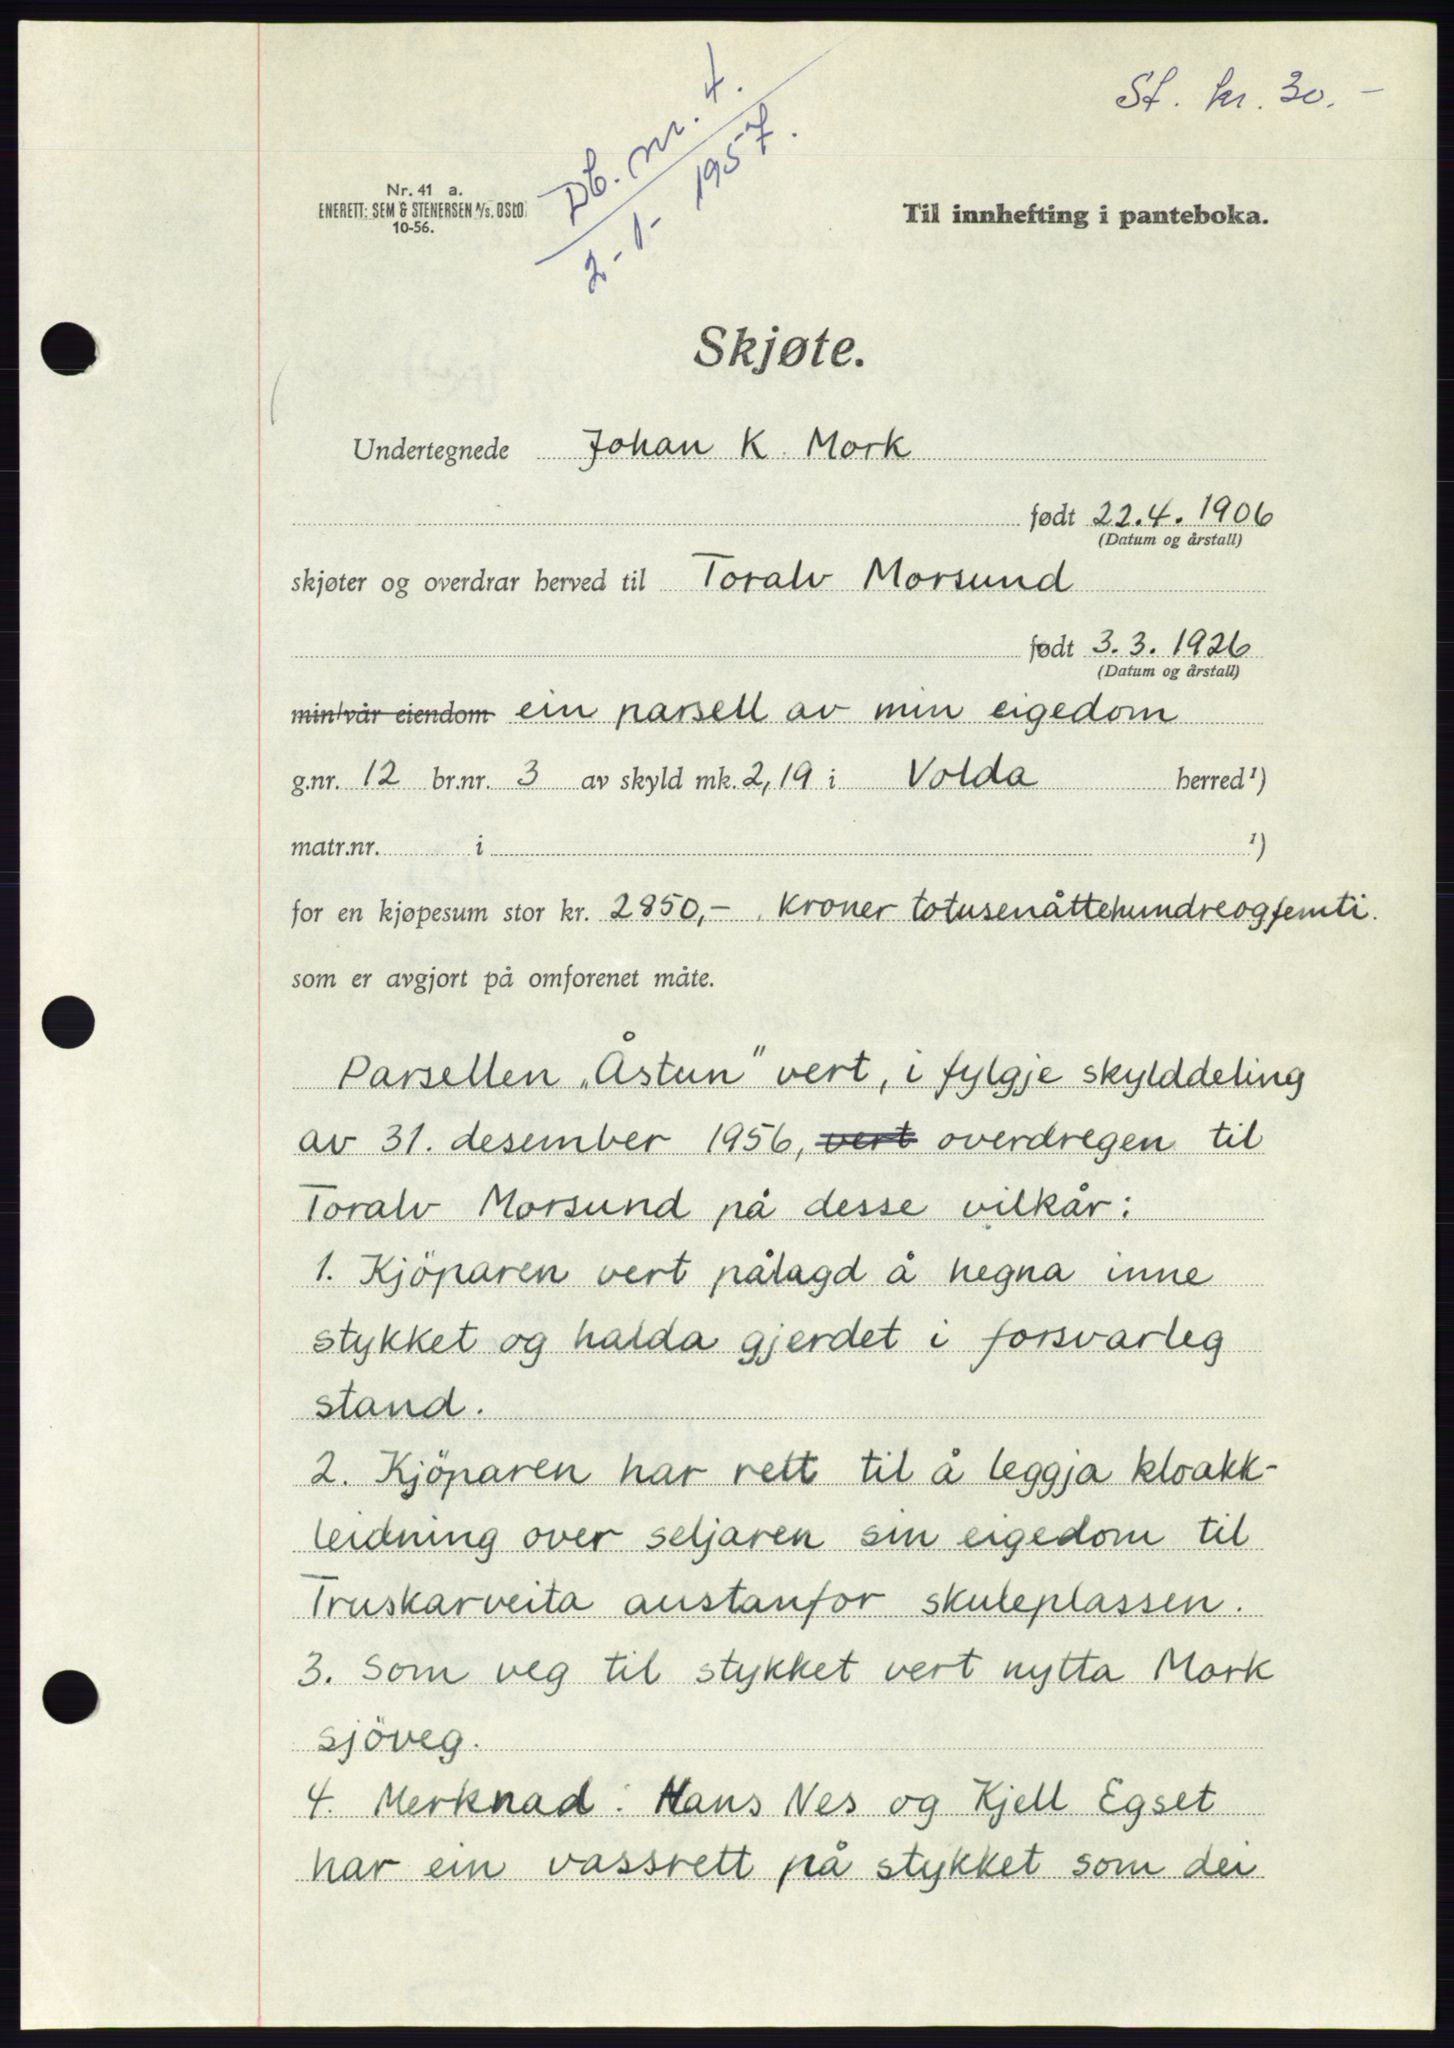 St. kr. 30.-
Db. nr. 4.
2-1-1957.
Nr. 41 a.
ENERETT: SEM & STENERSEN A/S. OSLO
10-56.
Til innhefting i panteboka.
Skjøte.
Undertegnede Johan K. Mork
født 22.4.1906
(Datum og årstall)
skjøter og overdrar herved til Toralv Morsund
født 3.3.1926
(Datum og årstall)
min/vår eiendom ein parsell av min eigedom
g.nr. 12 br.nr. 3 av skyld mk. 2,19 i Volda herred ¹)
matr.nr. i ¹)
for en kjøpesum stor kr. 2850,- . kroner totusenåttehundreogfemti.
som er avgjort på omforenet måte.
Parsellen „Åstun" vert, i fylgje skylddeling
av 31. desember 1956, vert overdregen til
Toralv Morsund på desse vilkår:
1. Kjöparen vert pålagd å hegna inne
stykket og halda gjerdet i forsvarleg
stand.
2. Kjöparen har rett til å leggja kloakk-
leidning over seljaren sin eigedom til
Truskarveita austanfor skuleplassen.
3. Som veg til stykket vert nytta Mork
sjöveg.
4. Merknad: Hans Nes og Kjell Egset
har ein vassrett på stykket som dei